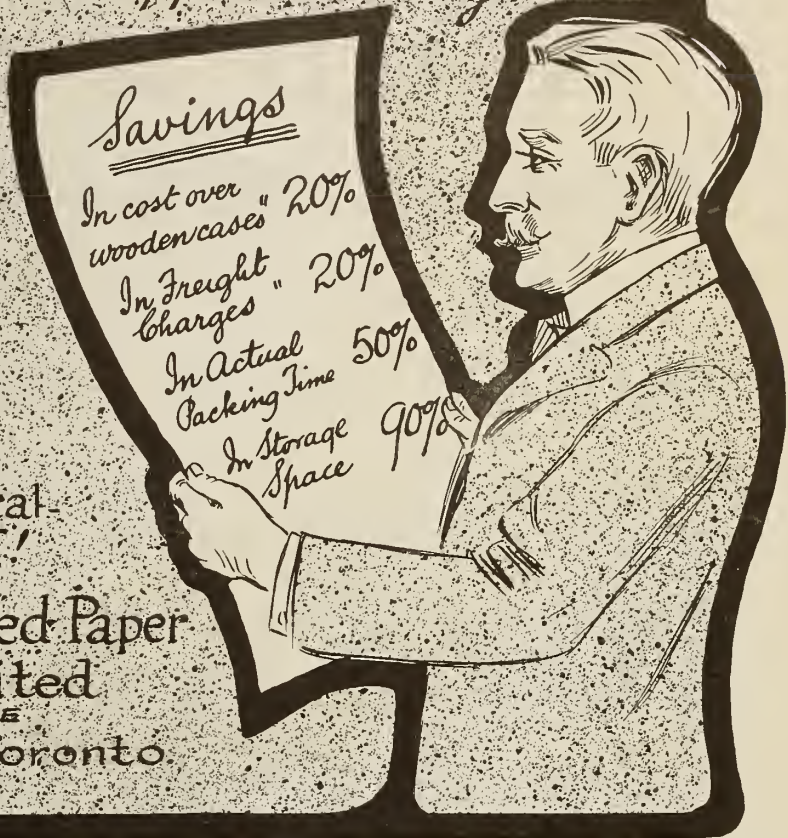 Savings
In cost over
wooden cases " 20%
In Freight
Charges " 20%
In Actual
Packing Time 50%
In Storage
Space 90%
Paper
Toronto